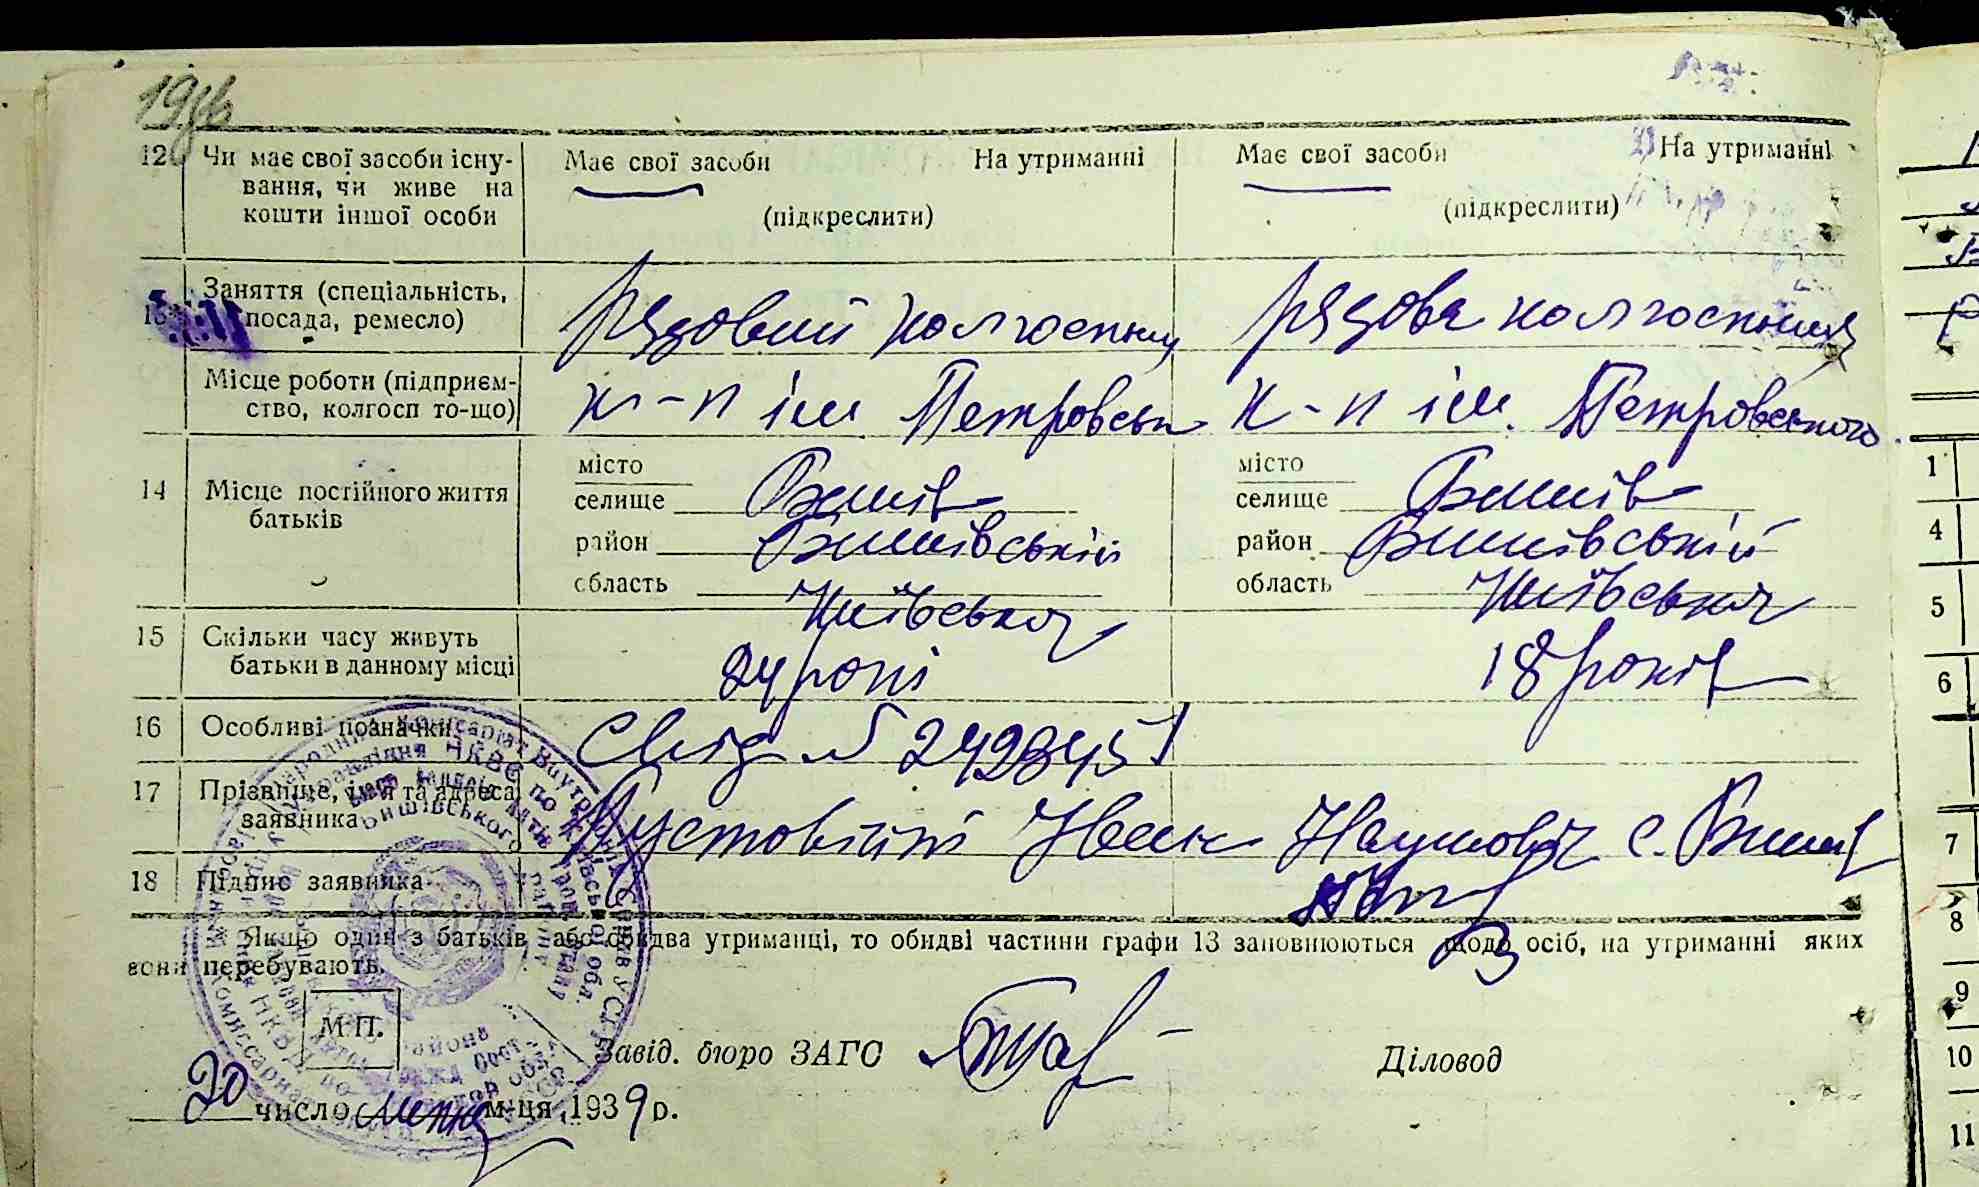 12 Чи має свої засоби існу- Має свої засоби На утриманні Має свої засоби На утриманні
вання, чи живе на
кошти іншої особи (підкреслити) (підкреслити)
Заняття (спеціальність,
посада, ремесло) рядовий колгоспниц рядова колгоспниця
Місце роботи (підприєм-
ство, колгосп то-що) к-п ім Петровськ к-п ім. Петровського.
місто місто
14 Місце постійного життя селище Бишів селище Бишів
батьків район Бишівській район Бишівській
область Київська область Київська
15 Скільки часу живуть
батьки в данному місці 24 роки 18 років
16 Особливі позначки Свід № 2429845
17 Прізвище, ім'я та адреса
заявника Пустовійт Іван Наумович с. Бишів
18 Підпис заявника
Якщо один з батьків або обидва утриманці, то обидві частини графи 13 заповнюються щодо осіб, на утриманні яких
вони перебувають.
М.П.
Завід. бюро ЗАГС Діловод
20 число липня м-ця, 1939 р.
1
4
5
6
7
8
9
10
11